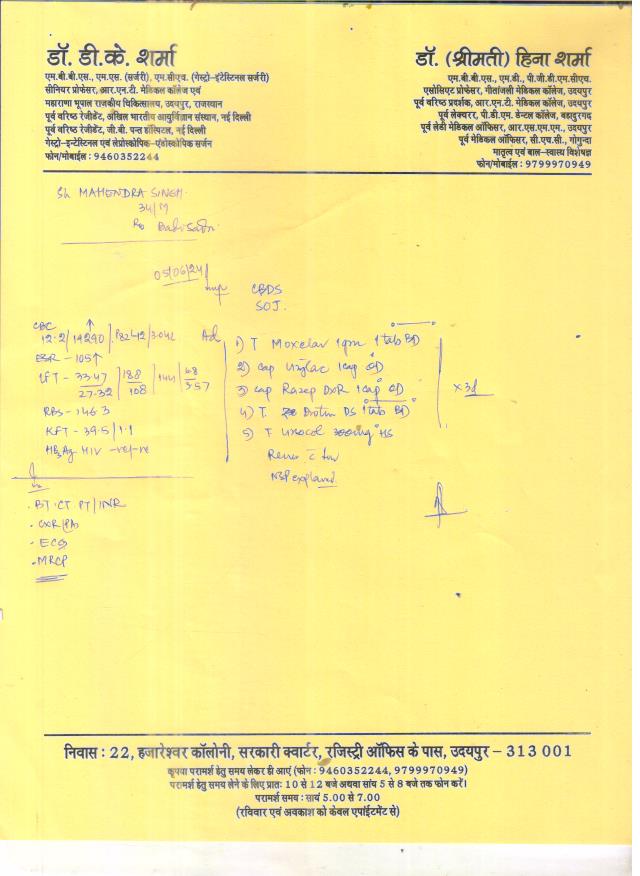 डॉ. डी.के. शर्मा
एम.बी.बी.एस., एम.एस. (सर्जरी), एम.सीएच. (गेस्ट्रो-इंटेस्टिनल सर्जरी)
सीनियर प्रोफेसर, आर.एन.टी. मेडिकल कॉलेज एवं
महाराणा भूपाल राजकीय चिकित्सालय, उदयपुर, राजस्थान
पूर्व वरिष्ठ रेजीडेंट, अखिल भारतीय आयुर्विज्ञान संस्थान, नई दिल्ली
पूर्व वरिष्ठ रेजीडेंट, जी.बी. पन्त हॉस्पिटल, नई दिल्ली
गेस्ट्रो-इन्टेस्टिनल एवं लेप्रोस्कोपिक-एंडोस्कोपिक सर्जन
फोन/मोबाईल : 9460352244
डॉ. (श्रीमती) हिना शर्मा
एम.बी.बी.एस., एम.डी., पी.जी.डी.एम.सीएच.
एसोसिएट प्रोफेसर, गीतांजली मेडिकल कॉलेज, उदयपुर
पूर्व वरिष्ठ प्रदर्शक, आर.एन.टी. मेडिकल कॉलेज, उदयपुर
पूर्व लेक्चरर, पी.डी.एम. डेन्टल कॉलेज, बहादुरगढ
पूर्व लेडी मेडिकल ऑफिसर, आर.एस.एम.एम., उदयपुर
पूर्व मेडिकल ऑफिसर, सी.एच.सी., गोगुन्दा
मातृत्व एवं बाल-स्वास्थ्य विशेषज्ञ
फोन/मोबाईल : 9799970949
Sh MAHENDRA SINGH
34/M
R/o
05/06/24
Imp CBDS
SOJ.
CBC ↑
12.2/14290
ESR - 105↑
LFT - 33.47 / 27.32 | 188 / 108 | 144
RBS - 146.3
KFT - 39.5/1.1
HBsAg HIV -ve/-ve
BT.CT PT/INR
CXR/PA
ECG
MRCP
Ad
1) T Moxclav 1gm 1 tab BD
2) cap 1cap OD
3) cap Razep DXR 1cap OD
4) T DS 1tab BD
5) T 300mg HS
x 3d
Review
explained
निवास : 22, हजारेश्वर कॉलोनी, सरकारी क्वार्टर, रजिस्ट्री ऑफिस के पास, उदयपुर – 313 001
कृपया परामर्श हेतु समय लेकर ही आएं (फोन : 9460352244, 9799970949)
परामर्श हेतु समय लेने के लिए प्रातः 10 से 12 बजे अथवा सांय 5 से 8 बजे तक फोन करें।
परामर्श समय : सायं 5.00 से 7.00
(रविवार एवं अवकाश को केवल एपॉईंटमेंट से)